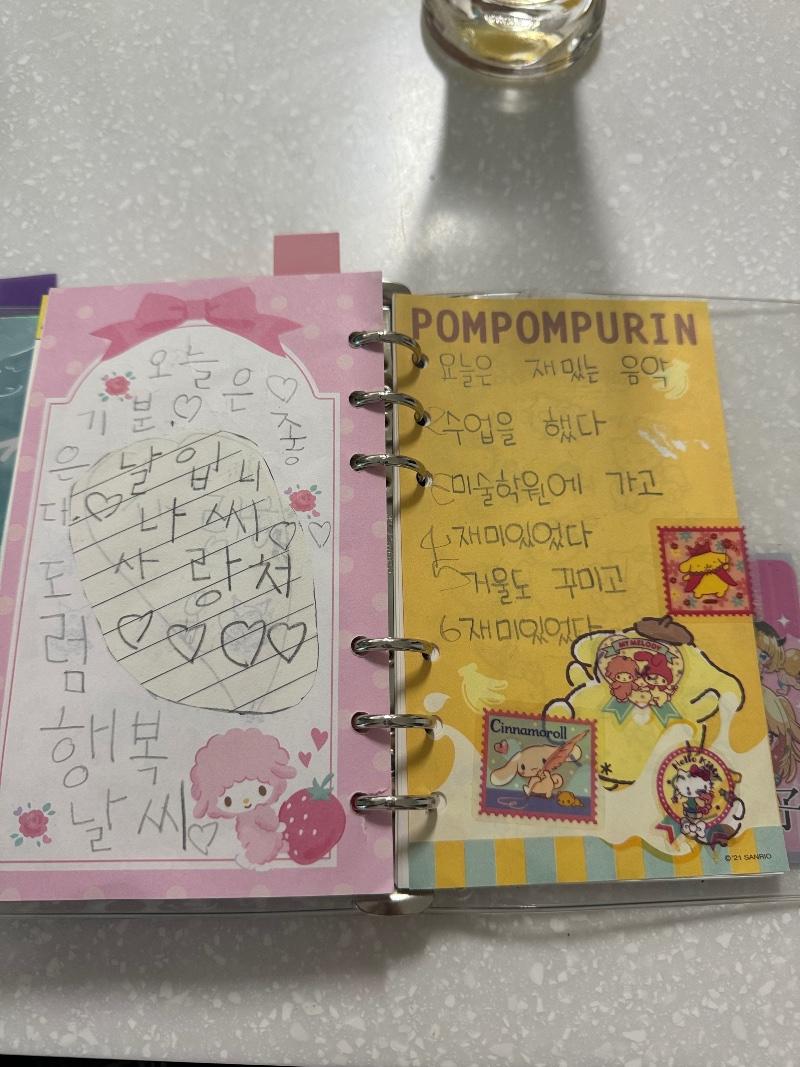 오늘은
기분 좋
은 날입니
다 날씨
사랑처
도
럼
행복
날씨
POMPOMPURIN
오늘은 재밌는 음악
2수업을 했다
3미술학원에 가고
4재미있었다
5거울도 꾸미고
6재미있었다
MY MELODY
Cinnamoroll
Hello Kitty
© '21 SANRIO
子